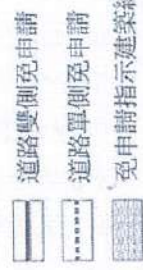 道路雙側免申請
道路單側免申請
免申請指示建築